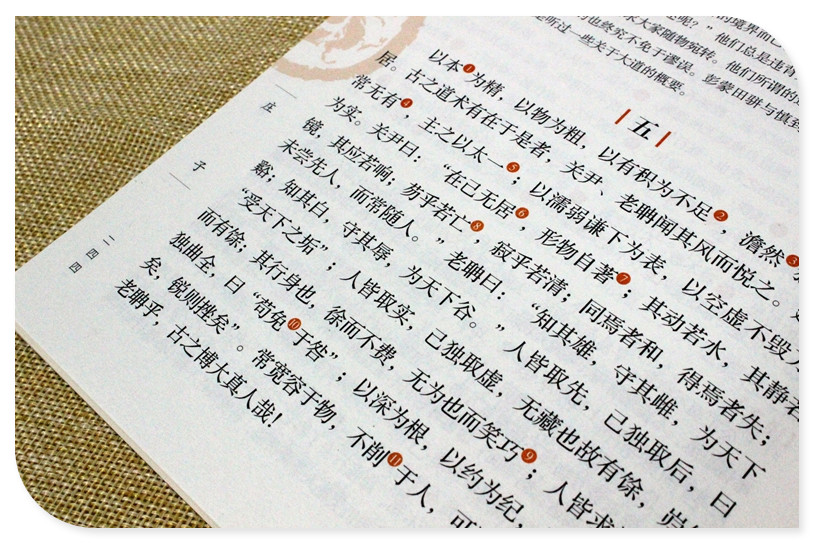 的境界而已
呢？”他们总是违背
大家随物宛转。他们所谓的道
的也终究不免于谬误。彭蒙田骈与慎到
是听过一些关于大道的概要。
五
以本❶为精，以物为粗，以有积为不足❷，澹然❸
居。古之道术有在于是者，关尹、老聃闻其风而悦之。建
常无有❹，主之以太一❺；以濡弱谦下为表，以空虚不毁万
为实。关尹曰：“在己无居❻，形物自著❼；其动若水，其静若
镜，其应若响；芴乎若亡❽，寂乎若清；同焉者和，得焉者失；
未尝先人，而常随人。”老聃曰：“知其雄，守其雌，为天下
谿；知其白，守其辱，为天下谷。”人皆取先，己独取后，曰
“受天下之垢”；人皆取实，己独取虚，无藏也故有馀，岿
而有馀；其行身也，徐而不费，无为也而笑巧❾；人皆求
独曲全，曰“苟免❿于咎”；以深为根，以约为纪，
矣，锐则挫矣”。常宽容于物，不削⓫于人，可
老聃乎，古之博大真人哉！
庄子
二四四